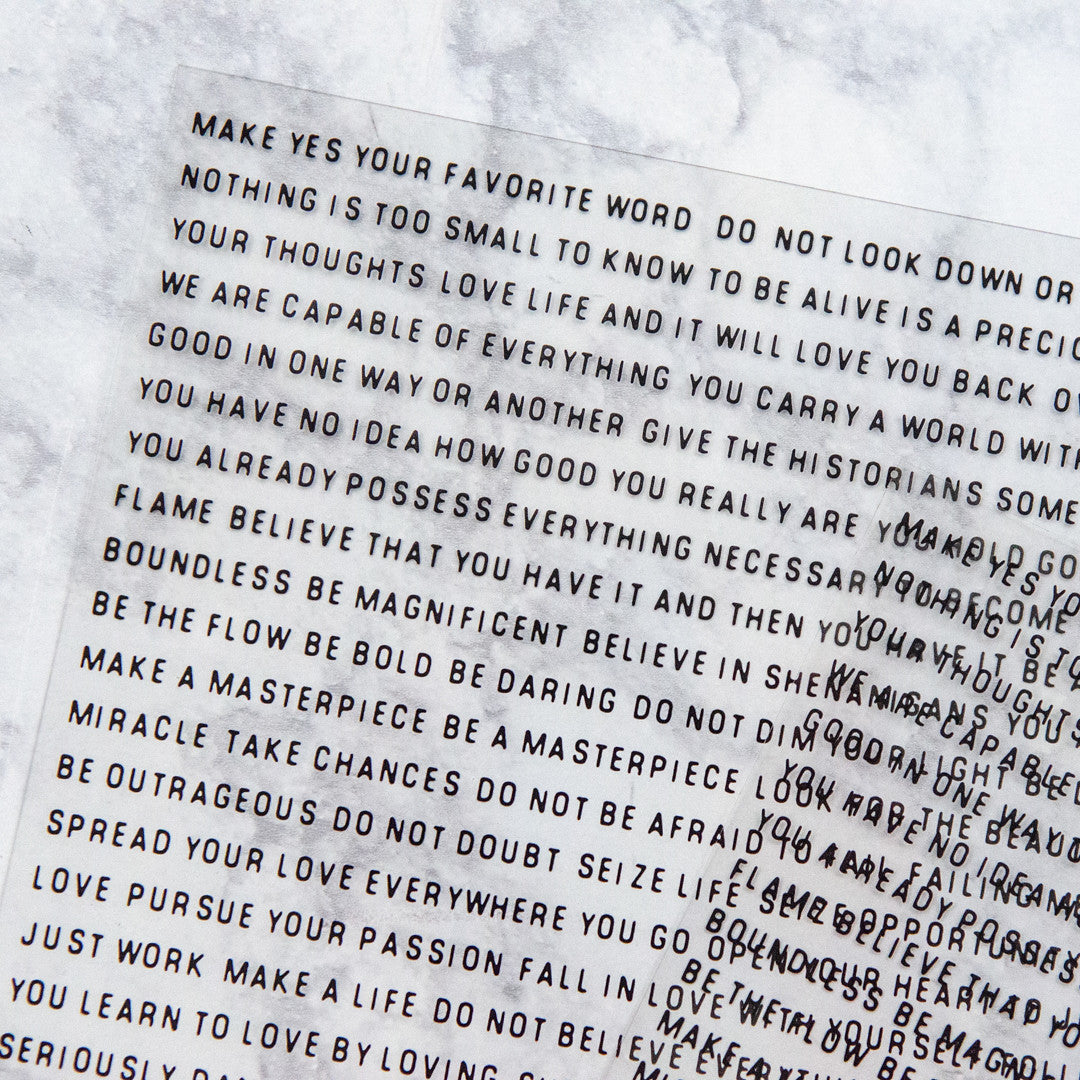 MAKE YES YOUR FAVORITE WORD DO NOT LOOK DOWN OR
NOTHING IS TOO SMALL TO KNOW TO BE ALIVE IS A
YOUR THOUGHTS LOVE LIFE AND IT WILL LOVE YOU BACK
WE ARE CAPABLE OF EVERYTHING YOU CARRY A WORLD
GOOD IN ONE WAY OR ANOTHER GIVE THE HISTORIANS SOME
YOU HAVE NO IDEA HOW GOOD YOU REALLY ARE
YOU ALREADY POSSESS EVERYTHING NECESSARY TO BECOME
FLAME BELIEVE THAT YOU HAVE IT AND THEN YOU HAVE IT BE
BOUNDLESS BE MAGNIFICENT BELIEVE IN SHENANIGANS YOU
BE THE FLOW BE BOLD BE DARING DO NOT DIM YOUR LIGHT BE
MAKE A MASTERPIECE BE A MASTERPIECE LOOK FOR THE
MIRACLE TAKE CHANCES DO NOT BE AFRAID TO FAIL FAILING
BE OUTRAGEOUS DO NOT DOUBT SEIZE LIFE SEIZE OPPORTUNITIES
SPREAD YOUR LOVE EVERYWHERE YOU GO OPEN YOUR HEART
LOVE PURSUE YOUR PASSION FALL IN LOVE WITH YOURSELF
JUST WORK MAKE A LIFE DO NOT BELIEVE
YOU LEARN TO LOVE BY LOVING
SERIOUSLY
MAKE YES
NOTHING IS
YOUR THOUGHTS
WE ARE CAPABLE
GOOD IN ONE WAY
YOU HAVE NO IDEA
YOU ALREADY
FLAME BELIEVE THAT
BOUNDLESS BE
BE THE FLOW BE
MAKE A